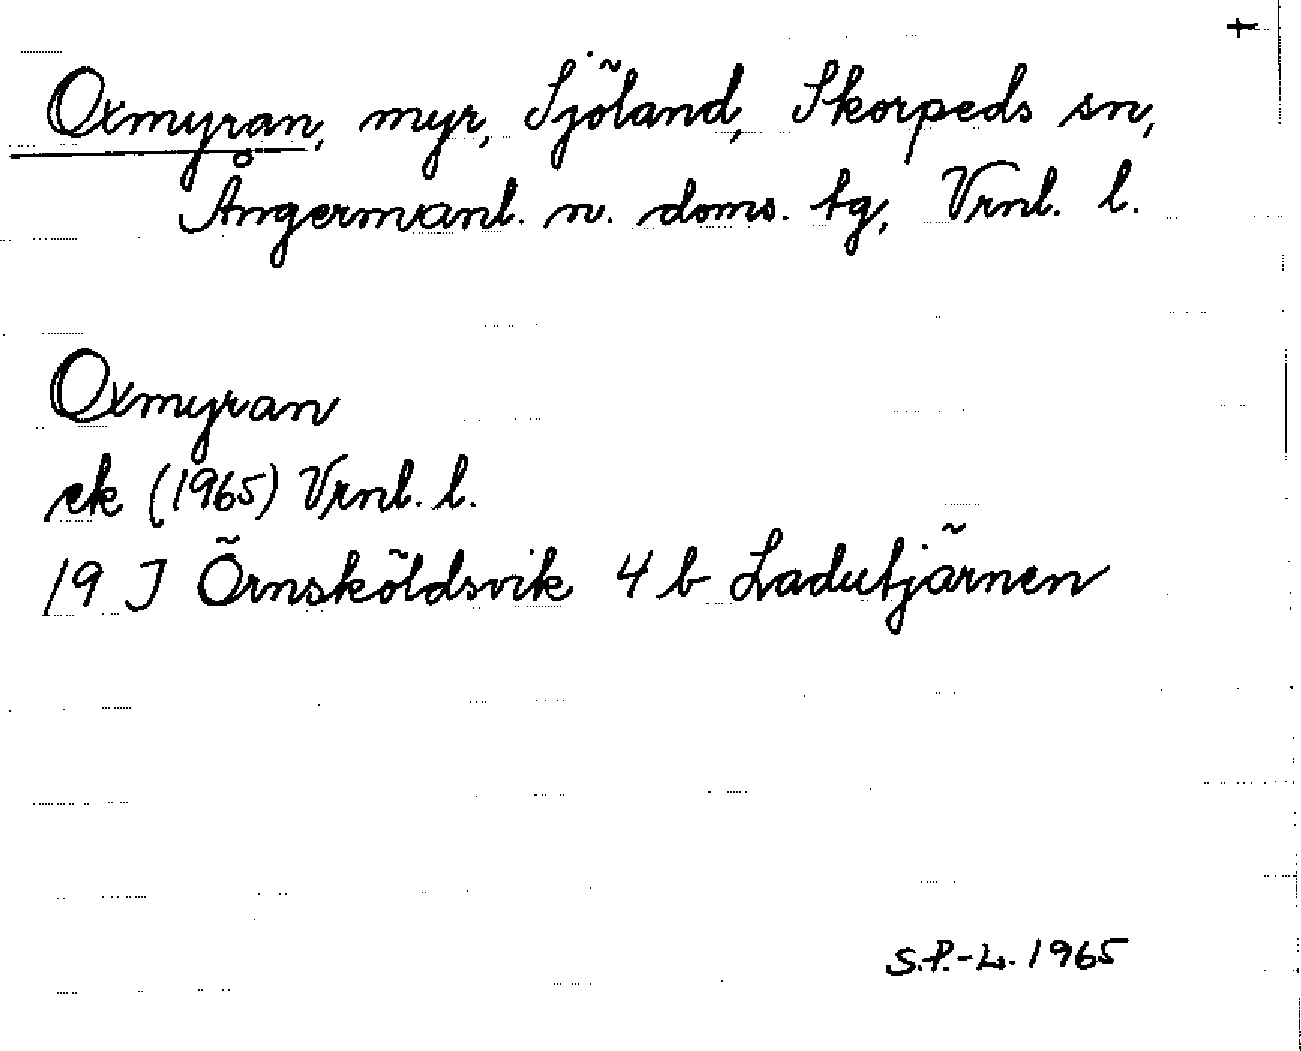 +
Oxmyran, myr, Sjöland, Skorpeds sn,
Ångermanl. n. doms. tg, Vrnl. l.
Oxmyran
ek (1965) Vrnl. l.
19 J Örnsköldsvik 4 b Ladutjärnen
S.P.-L. 1965